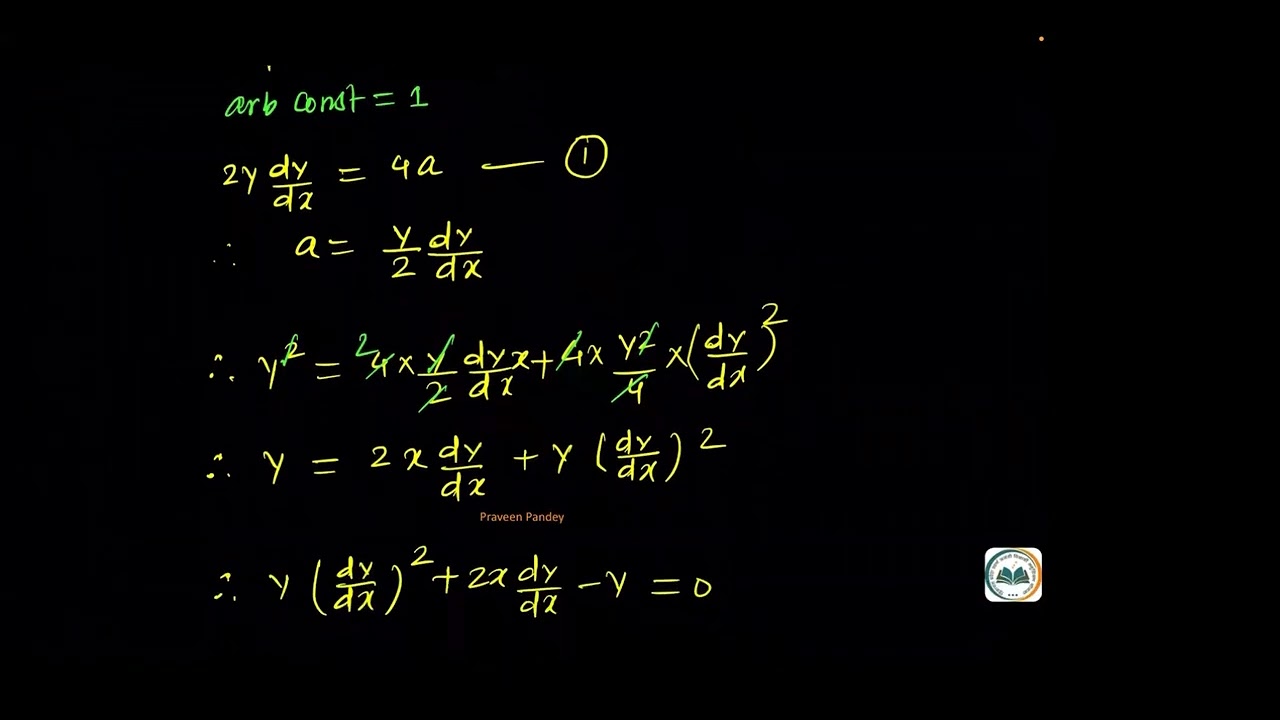 arb const = 1
2y dy/dx = 4a — ①
∴ a = y/2 dy/dx
∴ y² = ²4 × y/2 dy/dx x + 4 × y²/4 × (dy/dx)²
∴ y = 2x dy/dx + y (dy/dx)²
Praveen Pandey
∴ y (dy/dx)² + 2x dy/dx - y = 0